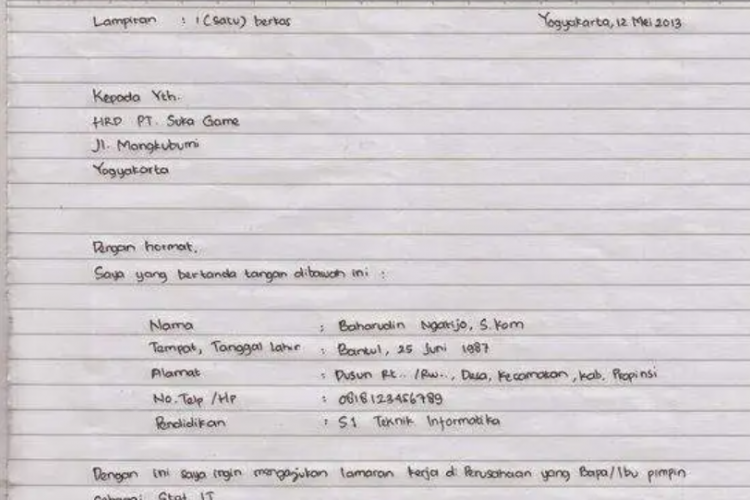 Lampiran : 1 (satu) berkas Yogyakarta, 12 Mei 2013
Kepada Yth.
HRD PT. Suka Game
Jl. Mangkubumi
Yogyakarta
Dengan hormat,
Saya yang bertanda tangan dibawah ini :
Nama : Baharudin Ngatijo, S.Kom
Tempat, Tanggal lahir : Bantul, 25 Juni 1987
Alamat : Dusun Rt.. /Rw.., Desa, Kecamatan, Kab, Propinsi
No. Telp /HP : 0818123456789
Pendidikan : S1 Teknik Informatika
Dengan ini saya ingin mengajukan lamaran kerja di Perusahaan yang Bapa/Ibu pimpin
sebagai Staf IT